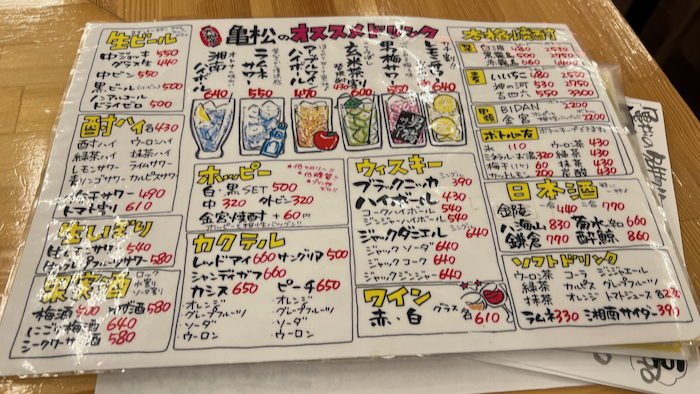 亀松のオススメドリンク
湘南ハイボール 640
ラムネサワー 550
アップルハイボール 640
玄米茶割り
男梅サワー
640
生ビール
中ジョッキ 550
グラス生 440
中ビン 550
黒ビール
ノンアルコール
ドライゼロ 500
酎ハイ 各430
酎ハイ ウーロンハイ
緑茶ハイ 抹茶ハイ
レモンサワー ライムサワー
青リンゴサワー カルピスサワー
サワー 490
トマト割り 610
生しぼり
540
グレープフルーツサワー 580
果実酒
ロック
水割り
ソーダ割り
梅酒 500 ゆず酒 580
にごり梅酒 640
シークワーサー酒 580
ホッピー
白・黒SET 500
中 320 外ビン 320
金宮焼酎 +60円
カクテル
レッドアイ 660 サングリア 500
シャンディガフ 660
カシス 650 ピーチ 650
・オレンジ ・オレンジ
・グレープフルーツ ・グレープフルーツ
・ソーダ ・ソーダ
・ウーロン ・ウーロン
ウィスキー
ブラックニッカ 390
ハイボール 430
コークハイボール 540
ジンジャーハイボール 540
ジャックダニエル 640
ジャック ソーダ 640
ジャック コーク 640
ジャック ジンジャー 640
ワイン
赤・白 グラス 各610
本格焼酎
白波 480 2530
黒霧島 500 2750
赤霧島
いいちこ 480 2530
神の河 530 2750
吉四六 550 3900
BIDAN 2200
金宮 2200
ボトルの友
氷 110 ウーロン 430
ミネラル・お湯 320 緑茶 430
梅干 (1ケ) 60 抹茶 430
カットレモン 200 炭酸 430
日本酒
金陵 440 770
八海山 830 菊水 660
鎌倉 770 酔鯨 860
ソフトドリンク
ウーロン茶 コーラ ジンジャエール
緑茶 カルピス グレープフルーツ
抹茶 オレンジ トマトジュース
ラムネ 330 湘南サイダー 390